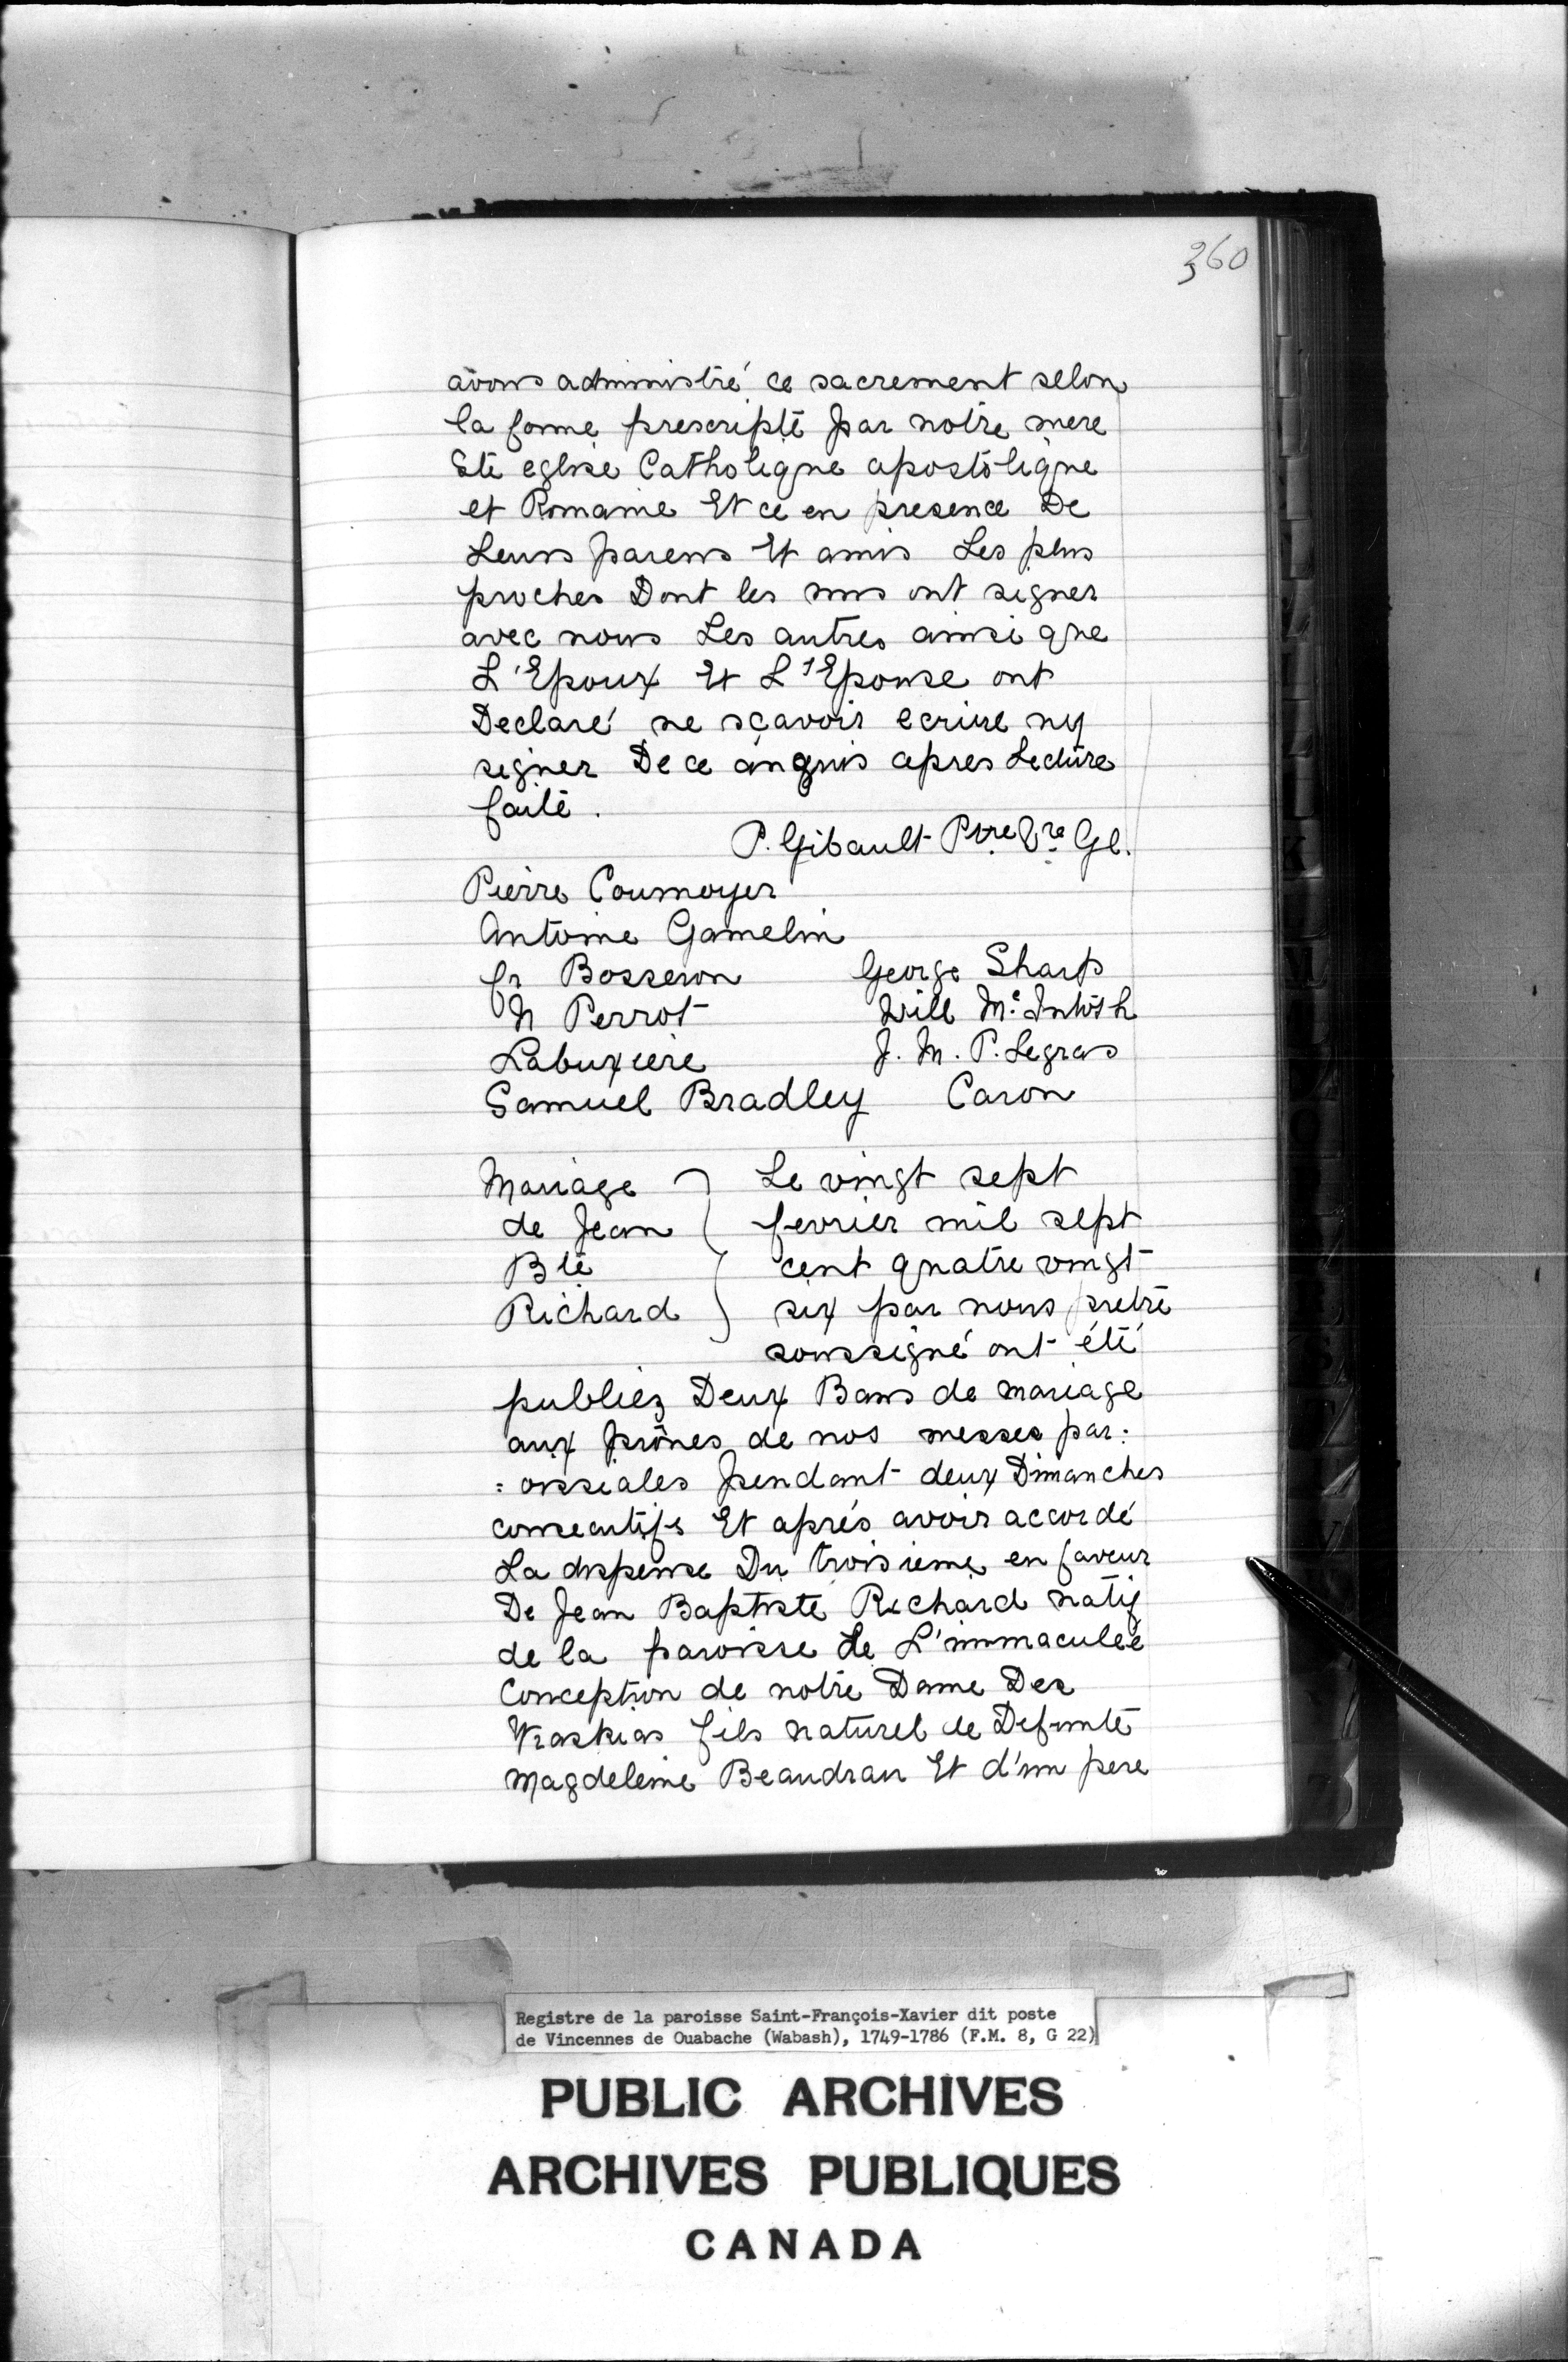 360
avons administré ce sacrement selon
la forme prescripte par notre mere
Ste eglise Catholique apostolique
et Romaine Et ce en presence De
Leurs parens Et amis Les plus
proches Dont les uns ont signer
avec nous Les autres ainsi que
L'Epoux Et L'Epouse ont
Declaré ne sçavoir ecrire ny
signer De ce anquis apres Lecture
faite.
P. Gibault Ptre Vre Gl.
Pierre Cournoyer
Antoine Gamelin
fr Bosseron George Sharp
N Perrot Will Mc Intosh
Labuxiere J. M. P. Legras
Samuel Bradley Caron
Mariage Le vingt sept
de Jean fevrier mil sept
Bte cent quatre vingt
Richard six par nous pretre
soussigné ont été
publiez Deux Bans de mariage
aux prônes de nos messes par:
:oissiales pendant deux Dimanches
consecutifs Et aprés avoir accordé
La dispense Du troisieme en faveur
De Jean Baptiste Richard natif
de la paroisse de L'immaculée
Conception de notre Dame Des
Kaskias fils naturel de Defunte
Magdeleine Beaudrau Et d'un pere
Registre de la paroisse Saint-François-Xavier dit poste
de Vincennes de Ouabache (Wabash), 1749-1786 (F.M. 8, G 22)
PUBLIC ARCHIVES
ARCHIVES PUBLIQUES
CANADA